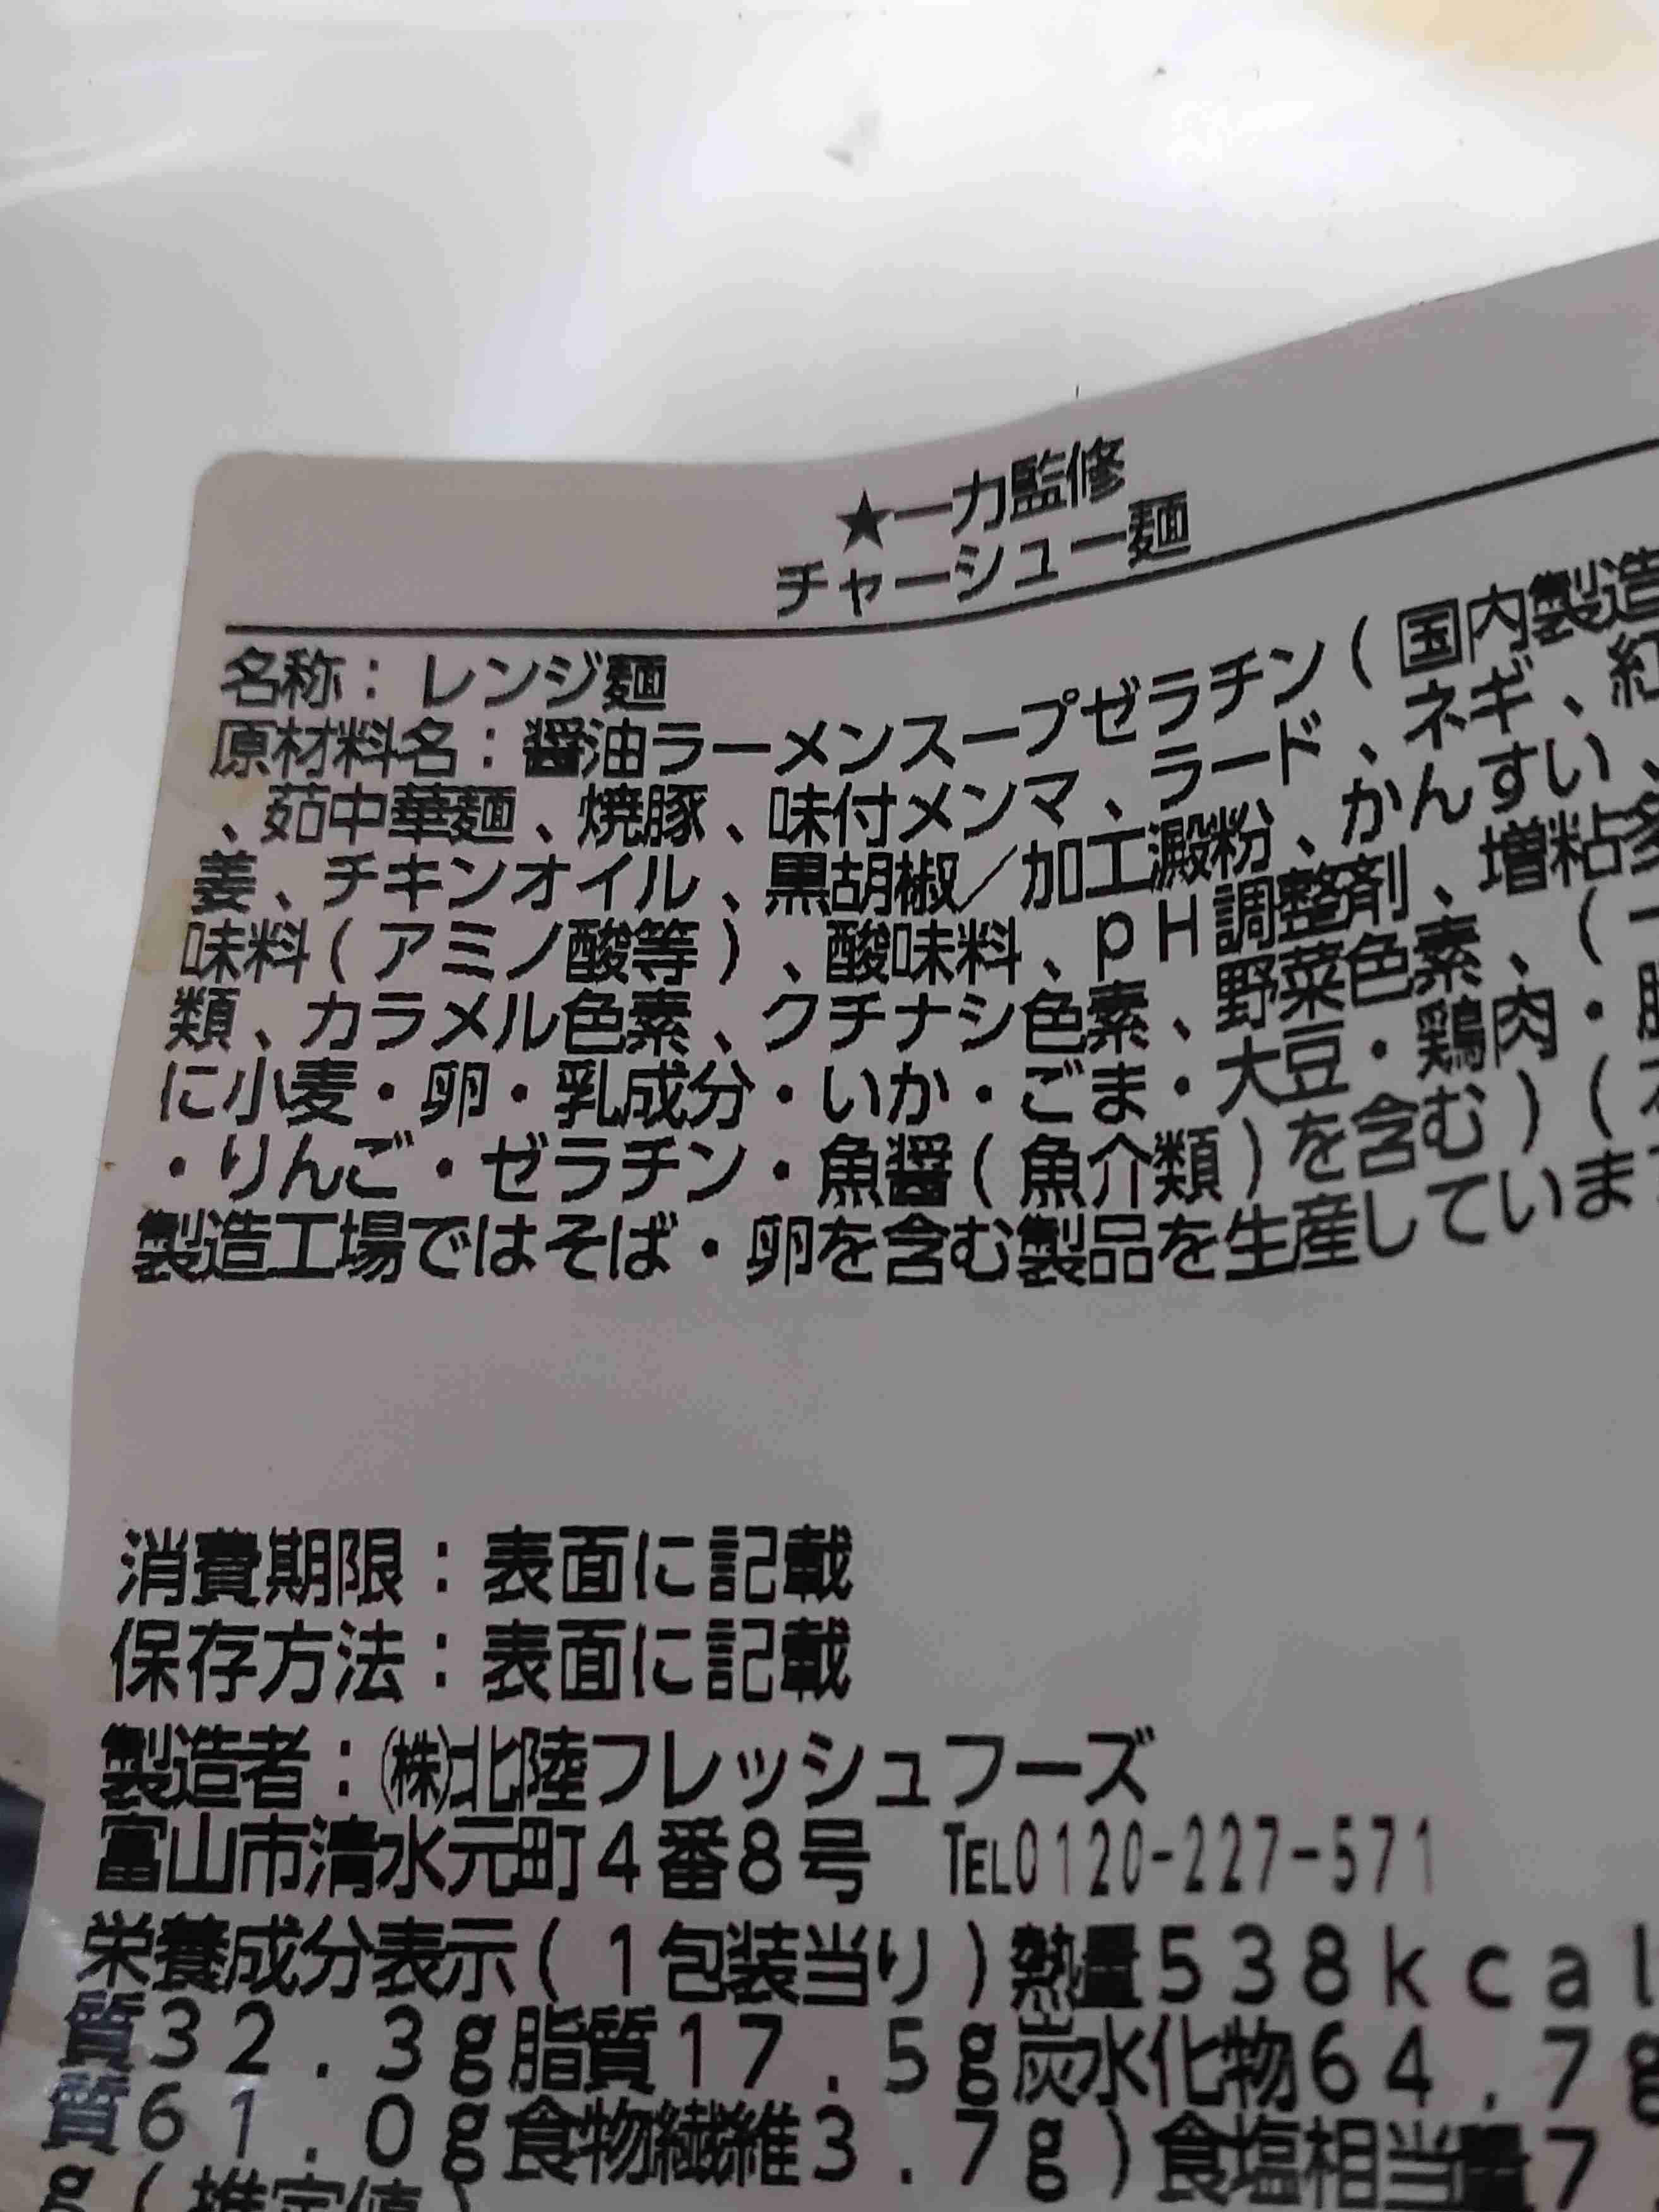 ★一力監修
チャーシュー麺
名称：レンジ麺
原材料名：醤油ラーメンスープゼラチン(国内製造
、茹中華麺、焼豚、味付メンマ、ラード、ネギ、紅
姜、チキンオイル、黒胡椒／加工澱粉、かんすい、
味料(アミノ酸等)、酸味料、pH調整剤、増粘多
類、カラメル色素、クチナシ色素、野菜色素、(一
に小麦・卵・乳成分・いか・ごま・大豆・鶏肉・豚
・りんご・ゼラチン・魚醤(魚介類)を含む)(本
製造工場ではそば・卵を含む製品を生産していま
消費期限：表面に記載
保存方法：表面に記載
製造者：㈱北陸フレッシュフーズ
富山市清水元町4番8号 TEL0120-227-571
栄養成分表示(1包装当り)熱量538kcal
質32.3g脂質17.5g炭水化物64.7g
質61.0g食物繊維3.7g)食塩相当量7.
g(推定値)